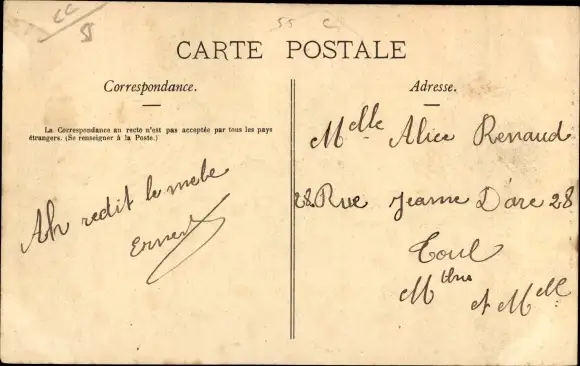 CC
55
55 C
CARTE POSTALE
Correspondance.
La Correspondance au recto n'est pas acceptée par tous les pays
étrangers. (Se renseigner à la Poste.)
redit le
Ernest
Adresse.
Melle Alice Renaud
28 Rue Jeanne D'arc 28
Toul
Mthe et Mlle